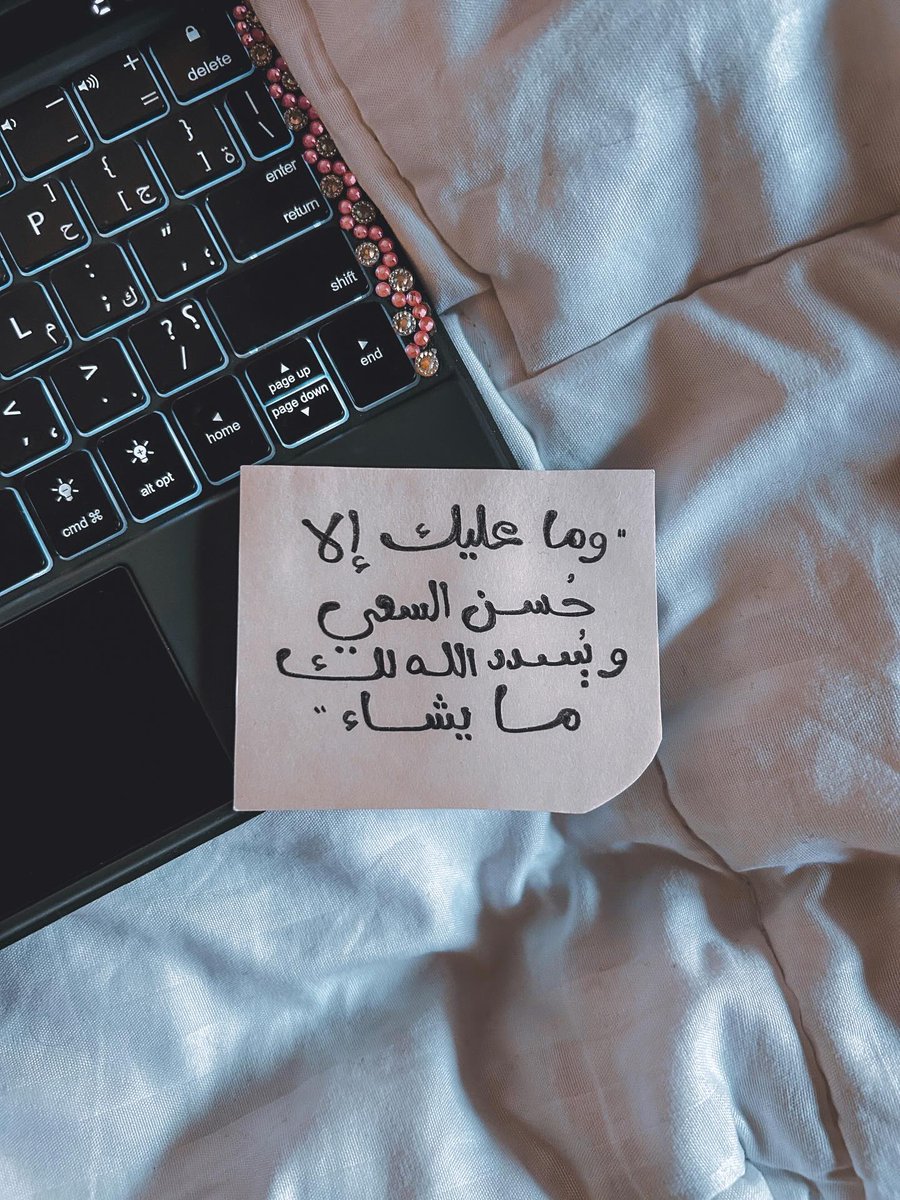 delete
+
=
−
-
}
] ة
| \
{
[ ج
P [
ح
enter
return
"
' ء
:
; ك
L م
shift
؟ ?
/
>
.
<
,
page up
page down
end
home
alt opt
cmd ⌘
"وما عليك إلا
حُسن السعي
ويُسدد الله لك
ما يشاء"